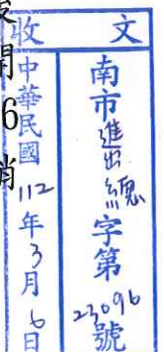 收文
南市進出總字第23096號
中華民國112年3月6日
開6